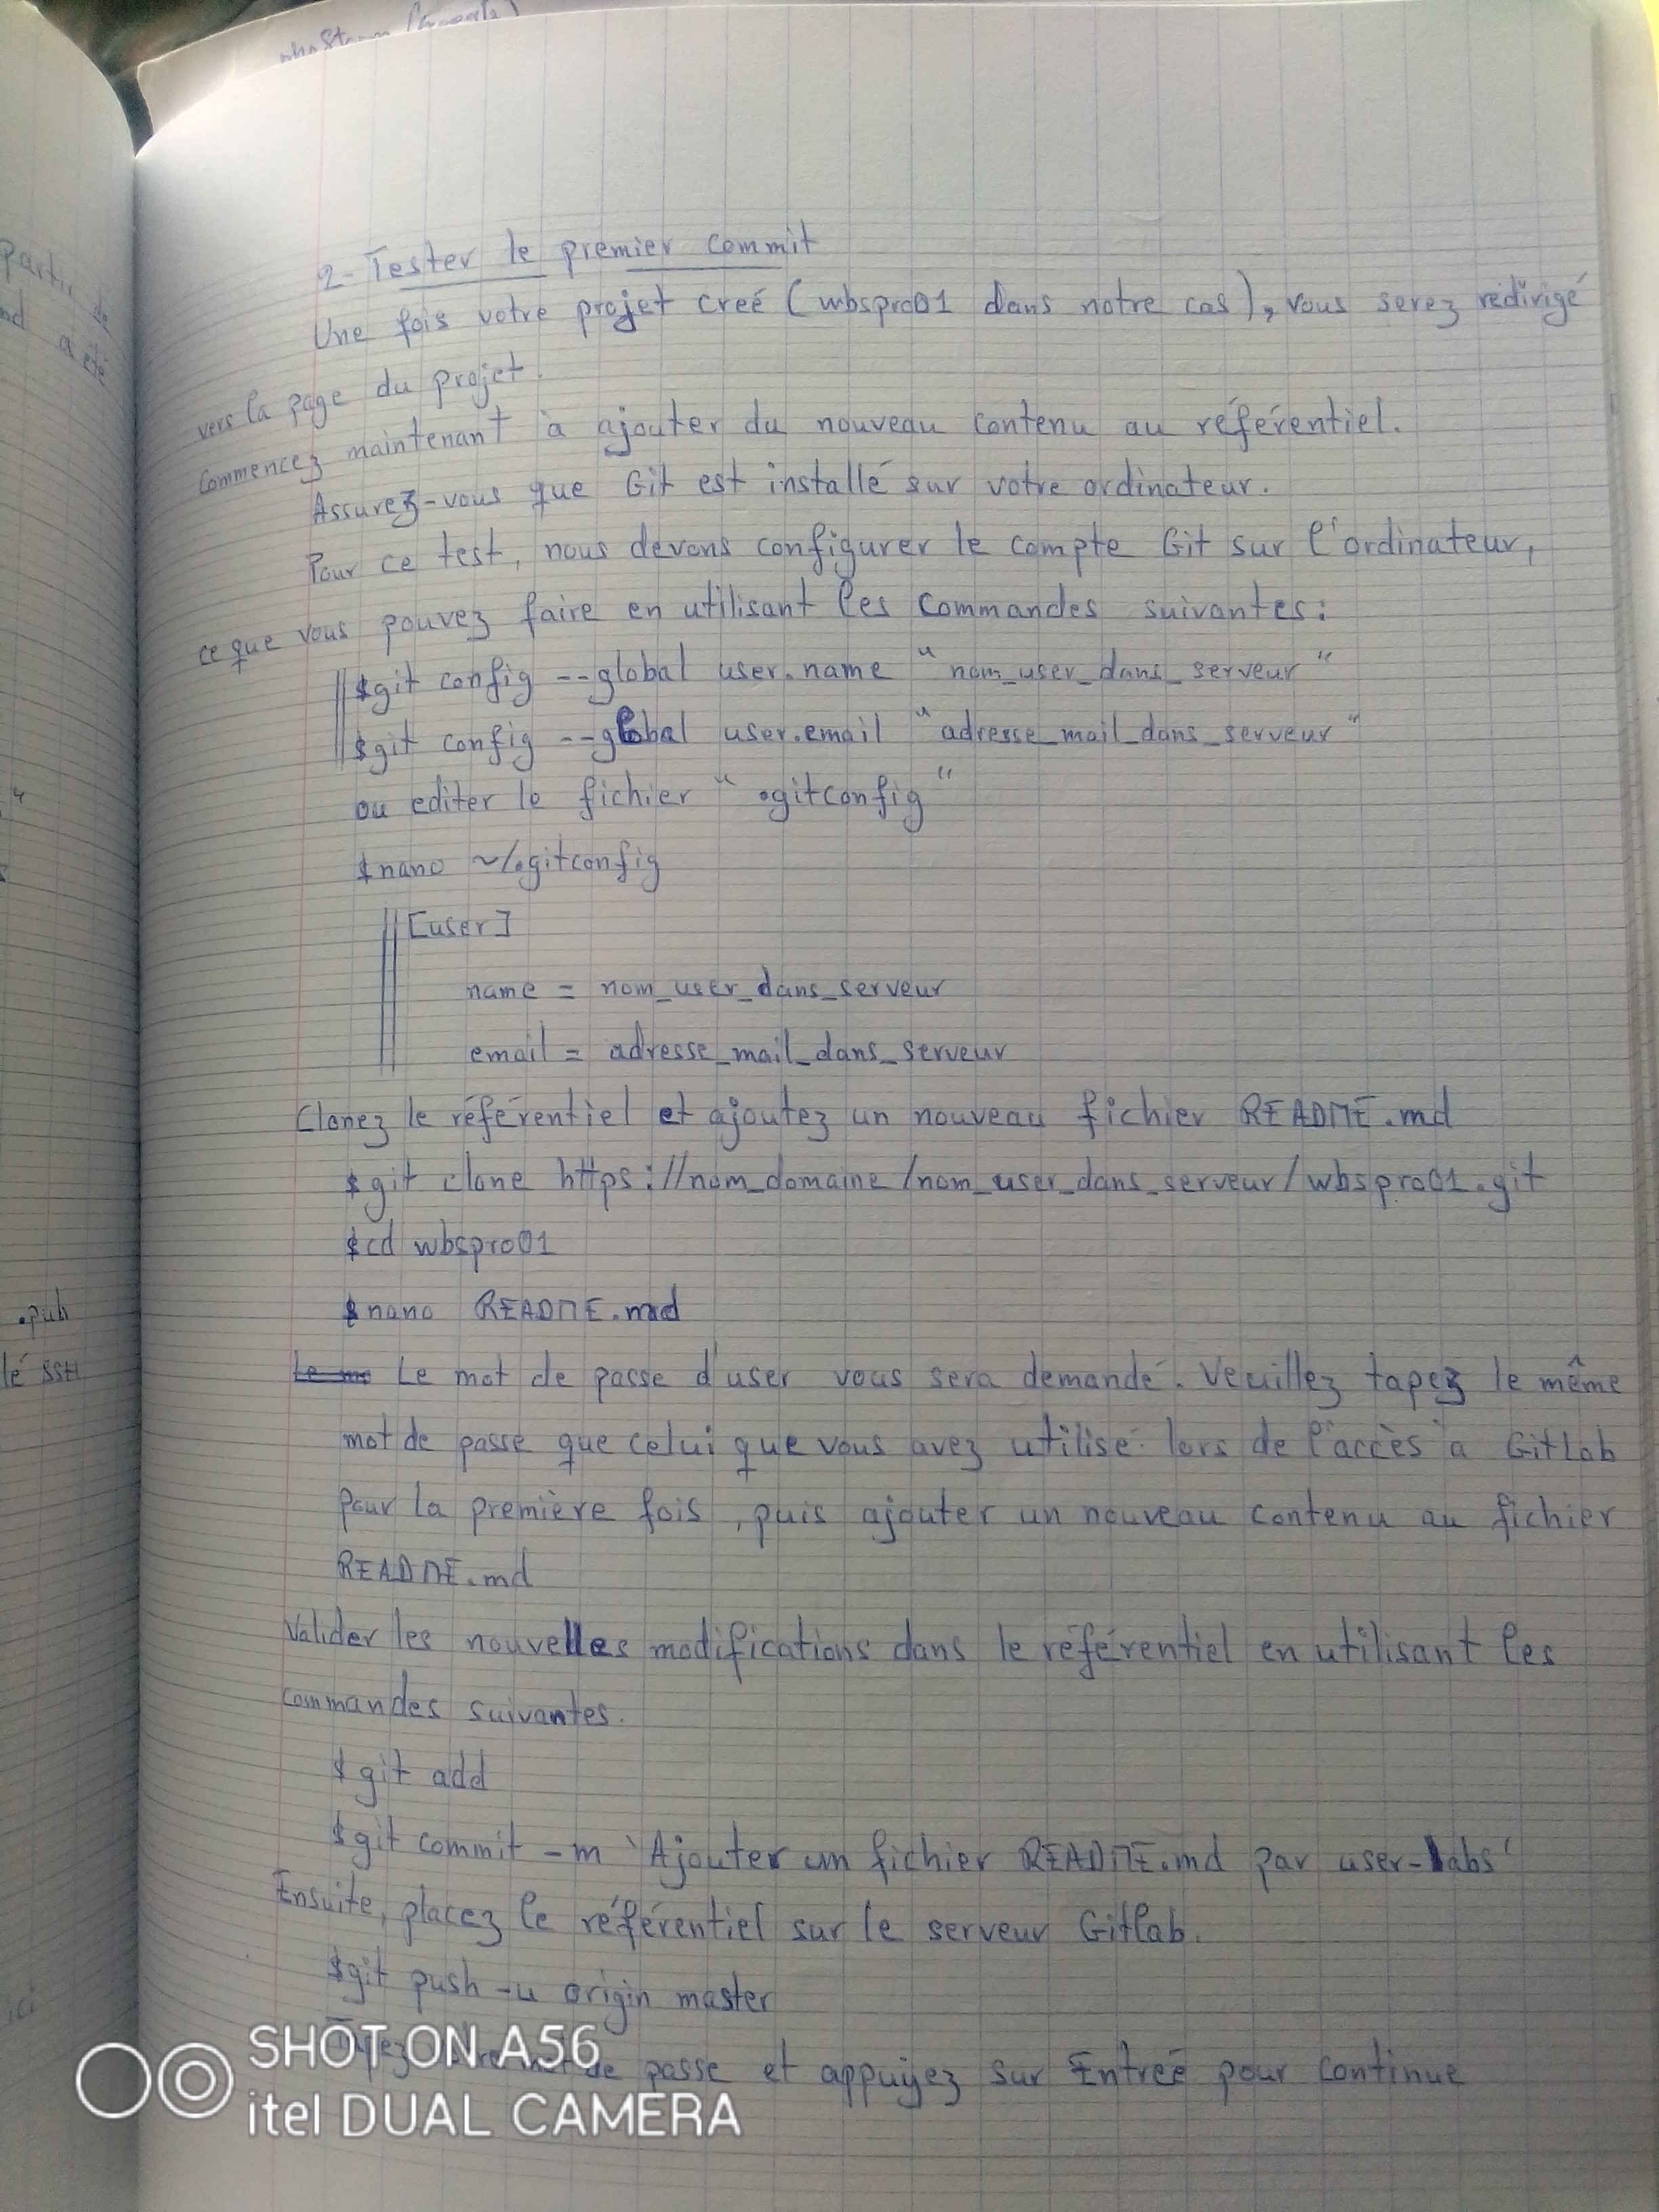 2- Tester le premier commit
Une fois votre projet creé (wbspro01 dans notre cas), vous serez redirigé
vers la page du projet.
Commencez maintenant à ajouter du nouveau contenu au référentiel.
Assurez-vous que Git est installé sur votre ordinateur.
Pour ce test, nous devons configurer le compte Git sur l'ordinateur,
ce que vous pouvez faire en utilisant les commandes suivantes:
$git config --global user.name "nom_user_dans_serveur"
$git config --global user.email "adresse_mail_dans_serveur"
ou editer le fichier ".gitconfig"
$nano ~/.gitconfig
[user]
name = nom_user_dans_serveur
email = adresse_mail_dans_serveur
Clonez le référentiel et ajoutez un nouveau fichier README.md
$ git clone https://nom_domaine/nom_user_dans_serveur/wbspro01.git
$cd wbspro01
$ nano README.md
Le mot de passe d'user vous sera demandé. Veuillez tapez le même
mot de passe que celui que vous avez utilisé lors de l'accès à GitLab
pour la première fois, puis ajouter un nouveau contenu au fichier
README.md
Valider les nouvelles modifications dans le référentiel en utilisant les
commandes suivantes.
$ git add
$git commit -m 'Ajouter un fichier README.md par user-labs'
Ensuite, placez le référentiel sur le serveur Gitlab.
$git push -u origin master
Tapez mot de passe et appuyez sur Entreé pour continue
partir de
a été
.pub
lé SSH
ici
SHOT ON A56
itel DUAL CAMERA